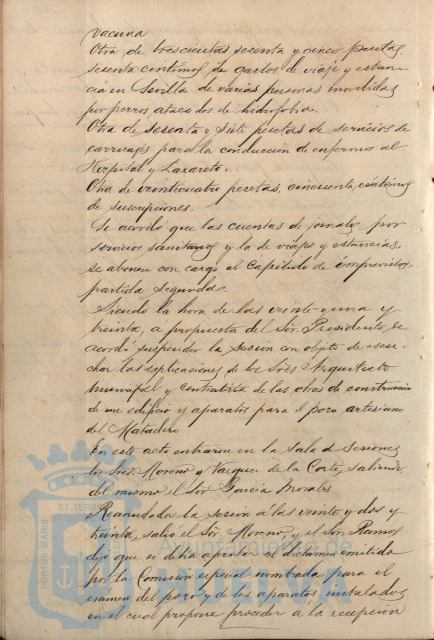 vacuna
Otra de trescientas sesenta y cinco pesetas
sesenta centimos, de gastos de viaje y estan-
cia en Sevilla de varias personas mordidas
por perros atacados de hidrofobia.
Otra de sesenta y siete pesetas de servicios de
carruajes para la conducción de enfermos al
Hospital y Lazareto.
Otra de veinticuatro pesetas, cincuenta centimos
de suscripciones.
Se acordó que las cuentas de jornales por
servicios sanitarios y la de viajes y estancias
se abonen con cargo al Capitulo de imprevistos,
partida segunda.
Siendo la hora de las veinte y una y
treinta, a propuesta del Sor. Presidente se
acordó suspender la sesion con objeto de escu-
char las esplicaciones de los Sres. Arquitecto
municipal y contratista de las obras de construccion
de un edificio y aparatos para el pozo artesiano
del Matadero
En este acto entraron en la Sala de Sesiones
los Sres. Moreno y Vazquez de la Corte, saliendo
del mismo el Sor. Garcia Morales
Reanudada la sesion a las veinte y dos y
treinta, salió el Sor. Moreno, y el Sor. Ramos
dijo que se debia aprobar el dictamen emitido
por la Comision especial nombrada para el
examen del pozo y de los aparatos instalados
en el cual propone proceder a la recepción
PORTUS MARIS
ET TERRAE
Ayuntamiento de
HUELVA